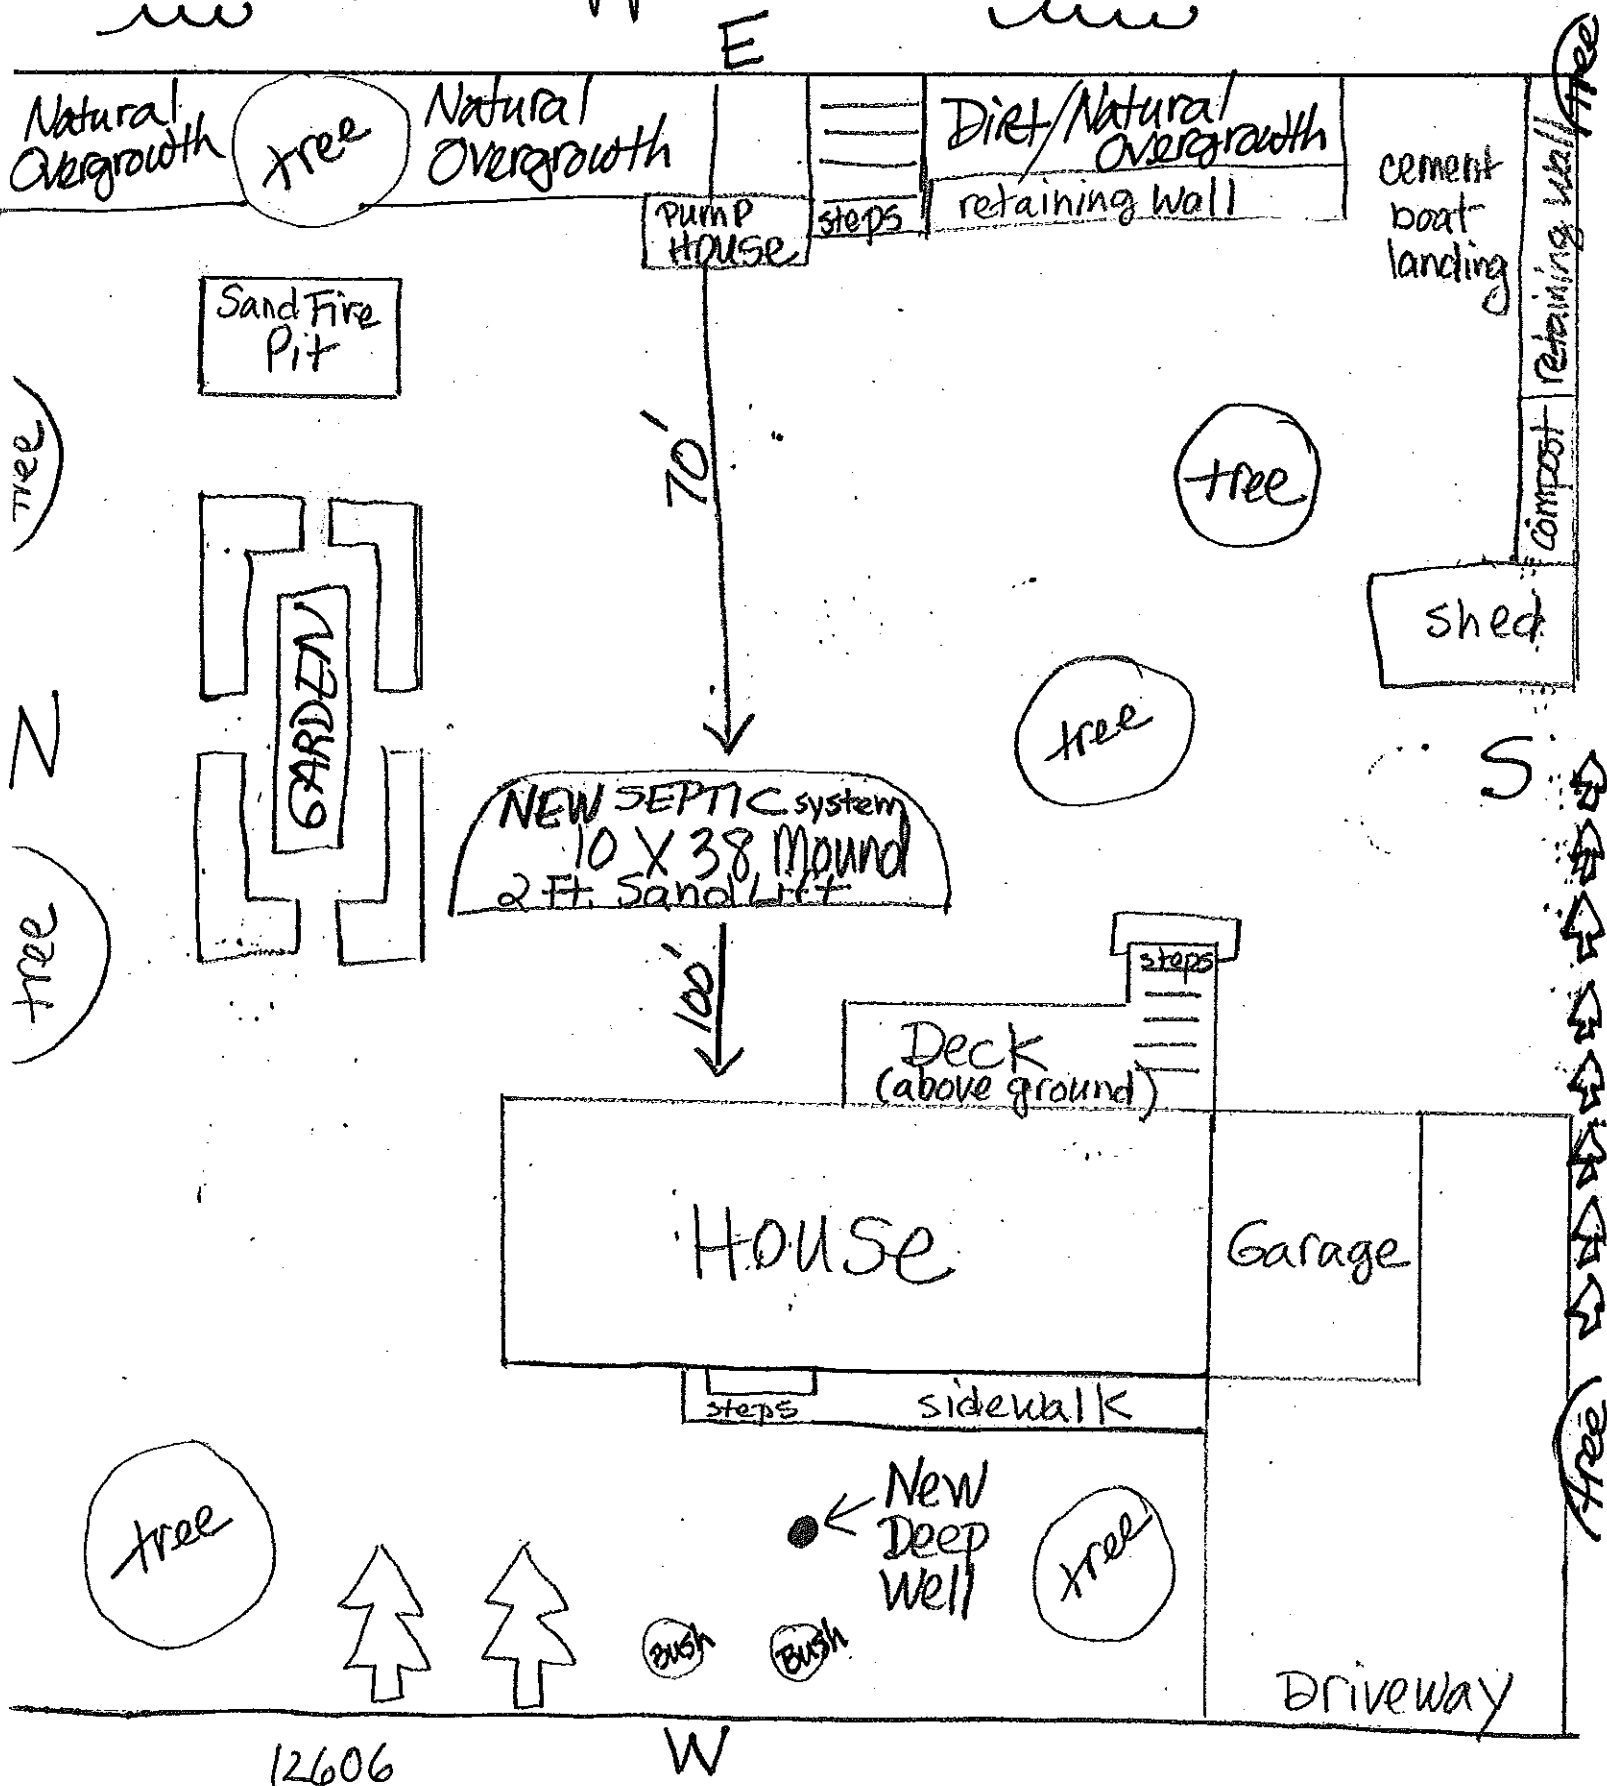 E
Natural
Overgrowth
tree
Natural
Overgrowth
Dirt/Natural
Overgrowth
tree
retaining wall
cement
boat
landing
retaining wall
Pump
House
steps
Sand Fire
Pit
tree
70'
tree
compost
shed
GARDEN
N
tree
S
NEW SEPTIC system
10 X 38 Mound
2 Ft. Sand Lift
tree
100'
steps
Deck
(above ground)
House
Garage
steps
sidewalk
tree
New
Deep
Well
tree
tree
Bush
Bush
Driveway
12606
W